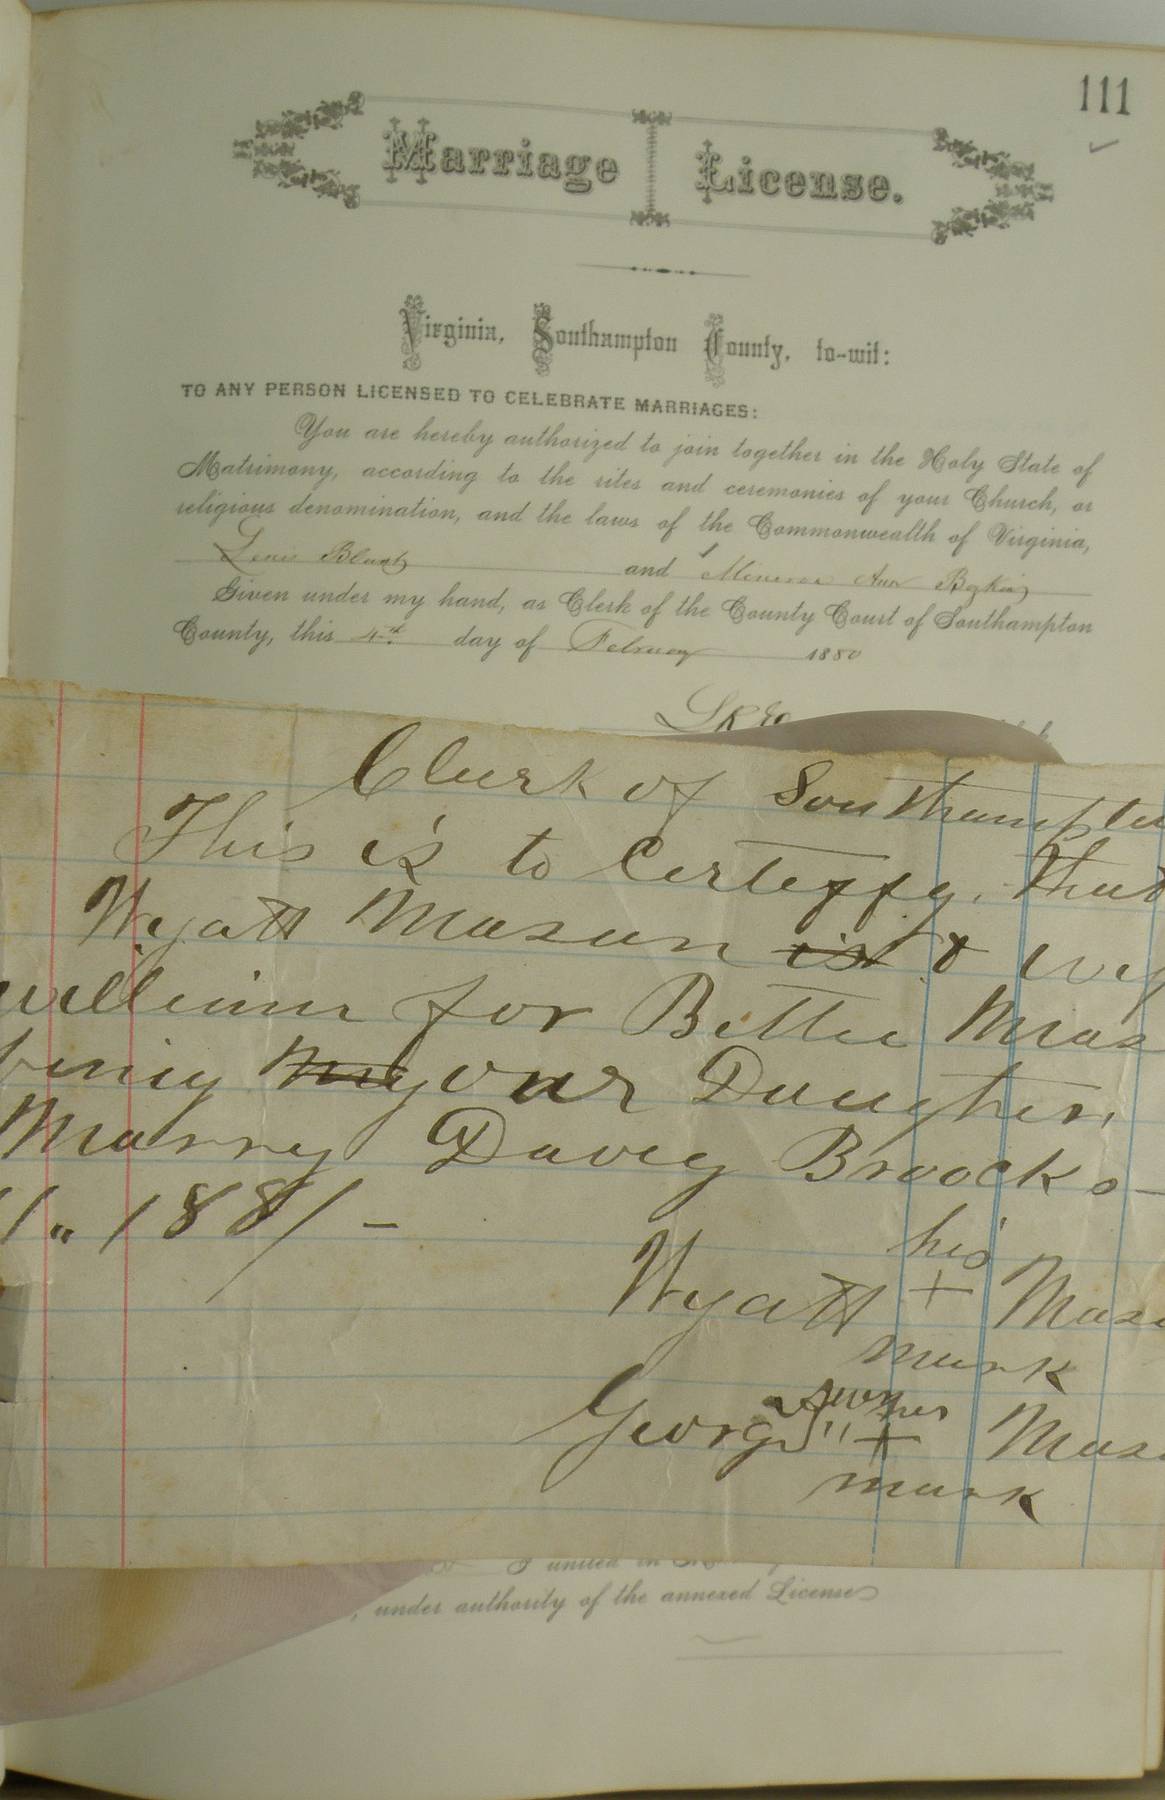 111
Marriage License.
Virginia, Southampton County, to-wit:
TO ANY PERSON LICENSED TO CELEBRATE MARRIAGES:
You are hereby authorized to join together in the Holy State of
Matrimony, according to the rites and ceremonies of your Church, or
religious denomination, and the laws of the Commonwealth of Virginia,
Lewis Blunt and Minerva Ann
Given under my hand, as Clerk of the County Court of Southampton
County, this 4th day of February 1880
Clurk of Southampton
This is to Certeffy, that
Wyatt Mason is &
willinn for Bettie Mas
being my our Daughter,
Marry Davey Broocks-
1,, 1881-
his
Wyatt + Maso
mark
George + Maso
mark
I united in
, under authority of the annexed License